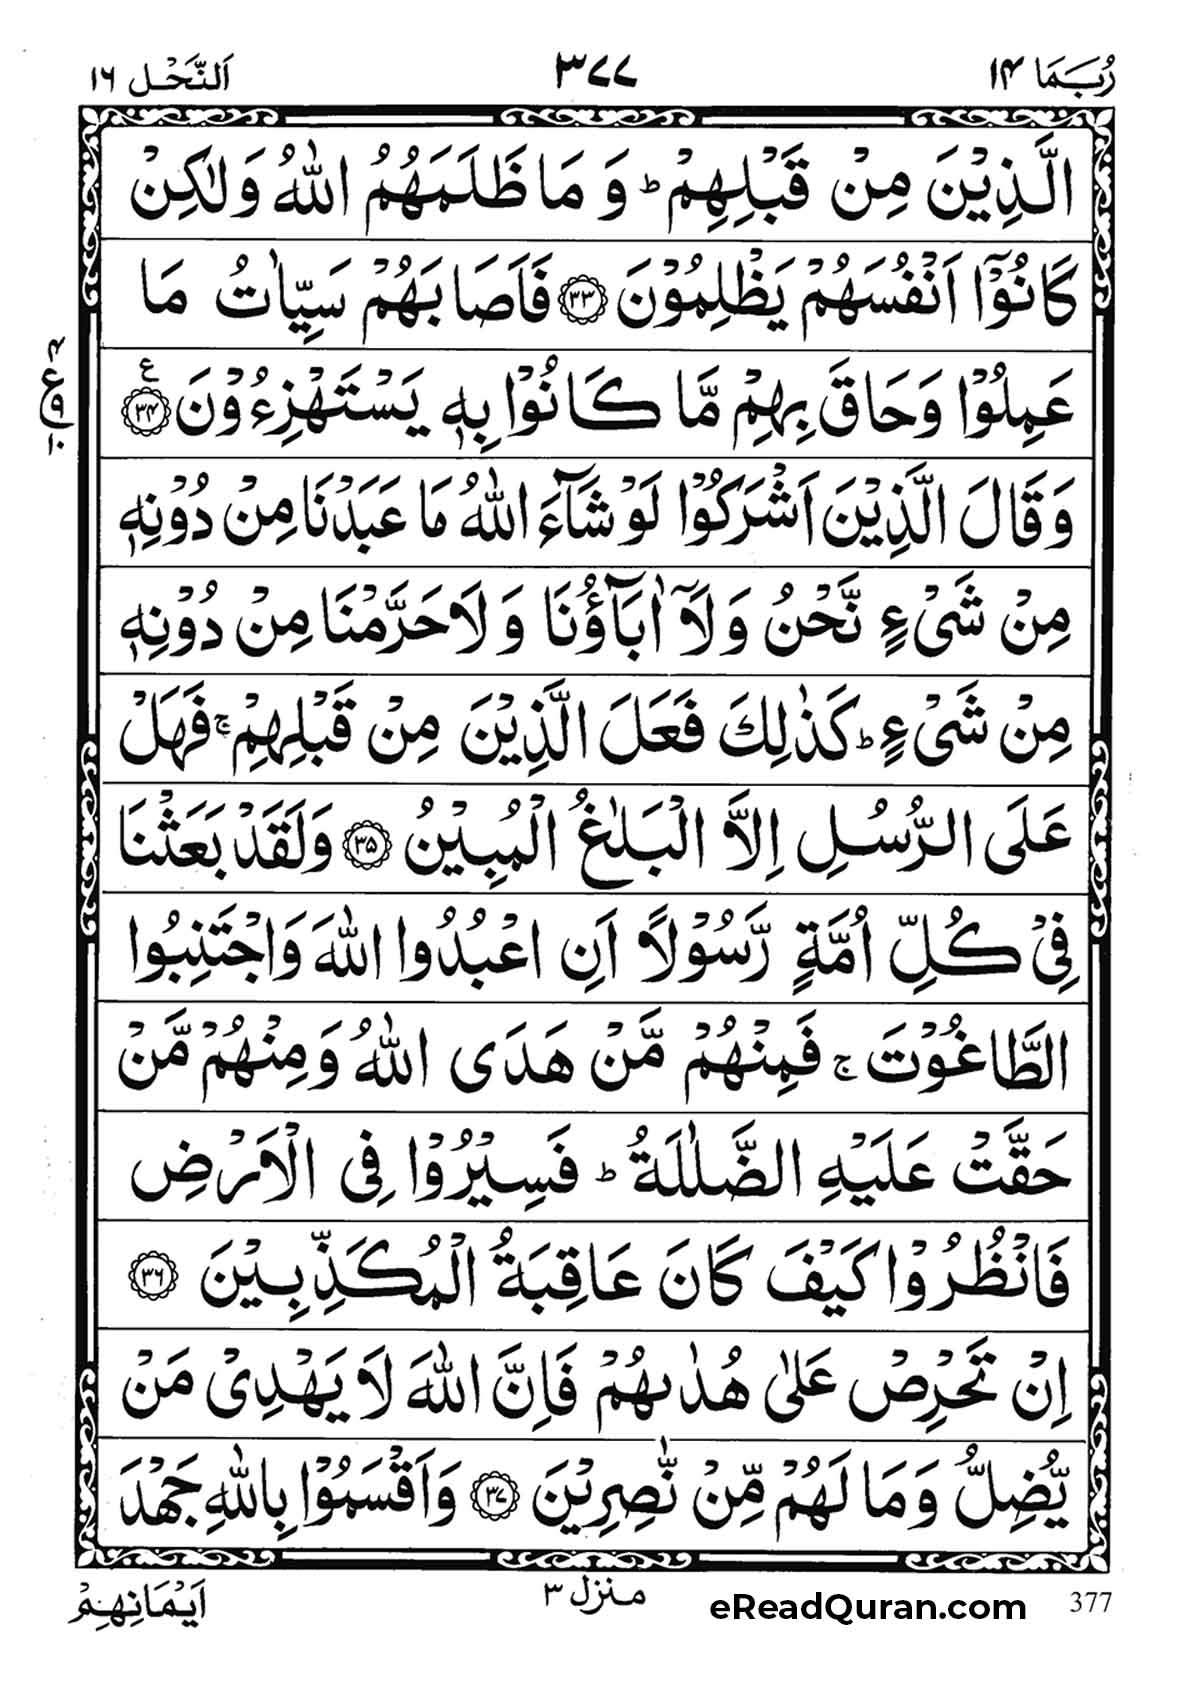 رُبَمَا ١٤
٣٧٧
اَلنَّحْل ١٦
الَّذِيْنَ مِنْ قَبْلِهِمْ ؕ وَ مَا ظَلَمَهُمُ اللّٰهُ وَلٰكِنْ
كَانُوْۤا اَنْفُسَهُمْ يَظْلِمُوْنَ ۝٣٣ فَاَصَابَهُمْ سَيِّاٰتُ مَا
عَمِلُوْا وَحَاقَ بِهِمْ مَّا كَانُوْا بِهٖ يَسْتَهْزِءُوْنَ ۝٣٤ ع
وَقَالَ الَّذِيْنَ اَشْرَكُوْا لَوْ شَآءَ اللّٰهُ مَا عَبَدْنَا مِنْ دُوْنِهٖ
مِنْ شَىْءٍ نَّحْنُ وَلَاۤ اٰبَآؤُنَا وَلَا حَرَّمْنَا مِنْ دُوْنِهٖ
مِنْ شَىْءٍ ؕ كَذٰلِكَ فَعَلَ الَّذِيْنَ مِنْ قَبْلِهِمْ ۚ فَهَلْ
عَلَى الرُّسُلِ اِلَّا الْبَلٰغُ الْمُبِيْنُ ۝٣٥ وَلَقَدْ بَعَثْنَا
فِىْ كُلِّ اُمَّةٍ رَّسُوْلًا اَنِ اعْبُدُوا اللّٰهَ وَاجْتَنِبُوا
الطَّاغُوْتَ ۚ فَمِنْهُمْ مَّنْ هَدَى اللّٰهُ وَمِنْهُمْ مَّنْ
حَقَّتْ عَلَيْهِ الضَّلٰلَةُ ؕ فَسِيْرُوْا فِى الْاَرْضِ
فَانْظُرُوْا كَيْفَ كَانَ عَاقِبَةُ الْمُكَذِّبِيْنَ ۝٣٦
اِنْ تَحْرِصْ عَلٰى هُدٰىهُمْ فَاِنَّ اللّٰهَ لَا يَهْدِىْ مَنْ
يُّضِلُّ وَمَا لَهُمْ مِّنْ نّٰصِرِيْنَ ۝٣٧ وَاَقْسَمُوْا بِاللّٰهِ جَهْدَ
اَيْمَانِهِمْ
منزل ٣
eReadQuran.com
377